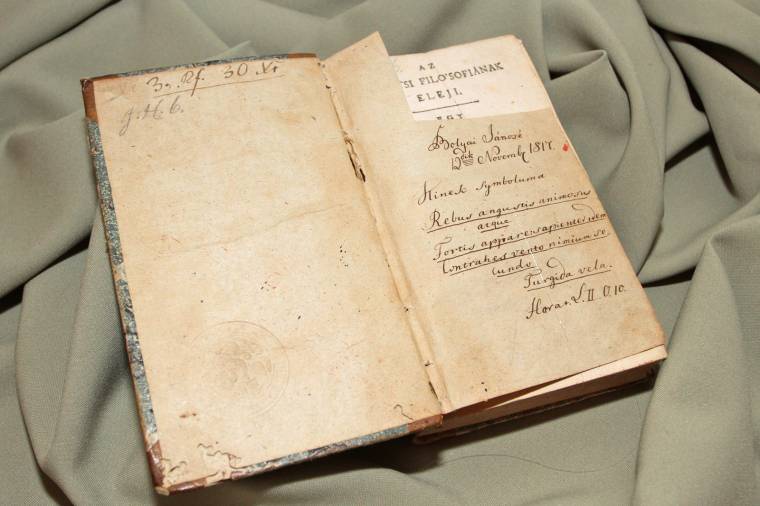 3. Rf. 30. XI
g. H. 6.
AZ
SI FILO'SOFIÁNAK
ELEJI.
EGY
Bolyai Jánosé
12dik Novembr 1817.
Kinek Symboluma
Rebus angustis animosus
atque
Fortis appare: sapienter idem
Contrahes vento nimium se
cundo
Turgida vela.
Horat. L. II. O. 10.